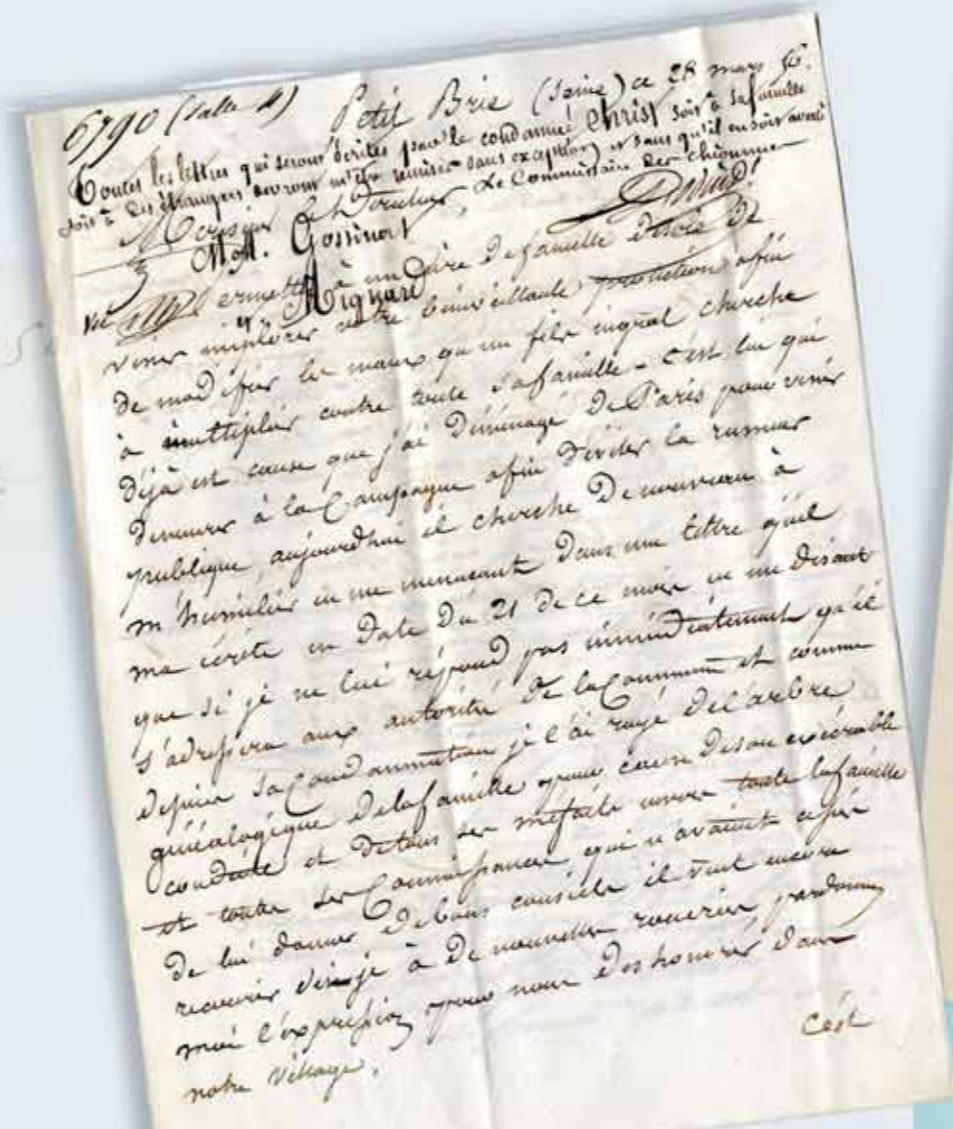 6790 (Salle 4) Petit Brie (Seine) ce 28 mars 56.
Toutes les lettres qui seront écrites par le condamné Christ soit à sa famille
soit à des étrangers devront m'être remises sans exception et sans qu'il en soit averti
Le Commissaire des chiourmes
Monsieur le Directeur,
MM. Gossinart
Mignard
Permettez à un père de famille désolé de
venir implorer votre bienveillante protection afin
de modifier les maux qu'un fils ingrat cherche
à multiplier contre toute sa famille - c'est lui qui
déjà est cause que j'ai déménagé de Paris pour venir
demeurer à la Campagne afin d'éviter la rumeur
publique, aujourd'hui il cherche de nouveau à
m'humilier en me menacant dans une lettre quil
ma écrite en date du 21 de ce mois en me disant
que si je ne lui répond pas immédiatement qu'il
s'adressera aux autorité de la Commune et comme
depuis sa Condamnation je l'ai rayé de l'arbre
généalogique de la famille pour cause de son exécrable
conduite et de tous ses méfaits envers toute la famille
et toutes ses Connaissances qui n'avaient cessé
de lui donner de bons conseils il veut encore
recourir dis-je à de nouvelles roueries, pardonnez
moi l'expression, pour nous deshonorér dans
notre village.
C'est